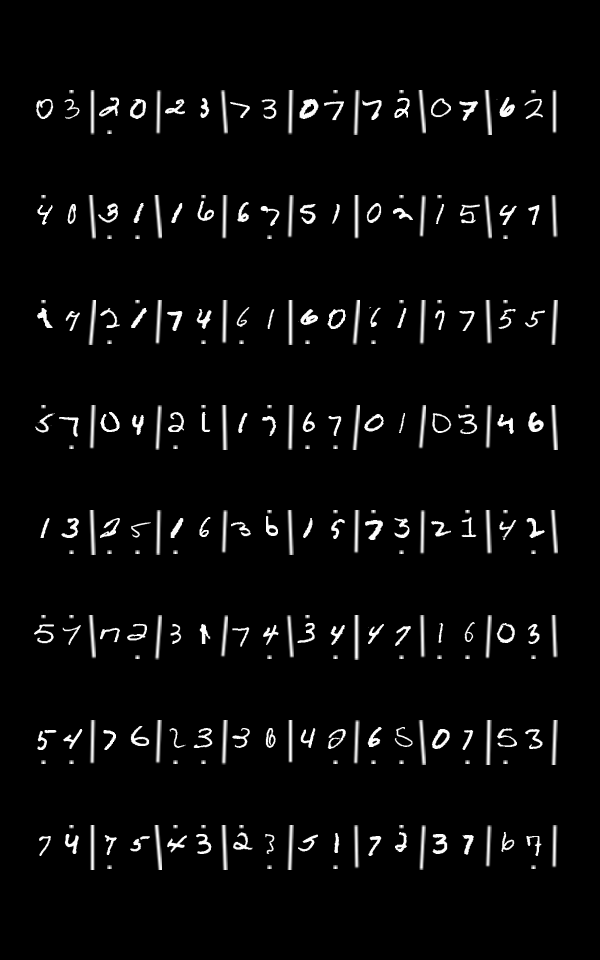 0 3 | 2 0 | 2 3 | 7 3 | 0 7 | 7 2 | 0 7 | 6 2 |
4 0 | 3 1 | 1 6 | 6 7 | 5 1 | 0 2 | 1 5 | 4 7 |
1 7 | 2 1 | 7 4 | 6 1 | 6 0 | 6 1 | 7 7 | 5 5 |
5 7 | 0 4 | 2 1 | 1 7 | 6 7 | 0 1 | 0 3 | 4 6 |
1 3 | 2 5 | 1 6 | 3 6 | 1 5 | 7 3 | 2 1 | 4 2 |
5 7 | 7 2 | 3 1 | 7 4 | 3 4 | 4 7 | 1 6 | 0 3 |
5 4 | 7 6 | 2 3 | 3 0 | 4 2 | 6 5 | 0 7 | 5 3 |
7 4 | 7 5 | 4 3 | 2 3 | 5 1 | 7 2 | 3 7 | 6 7 |